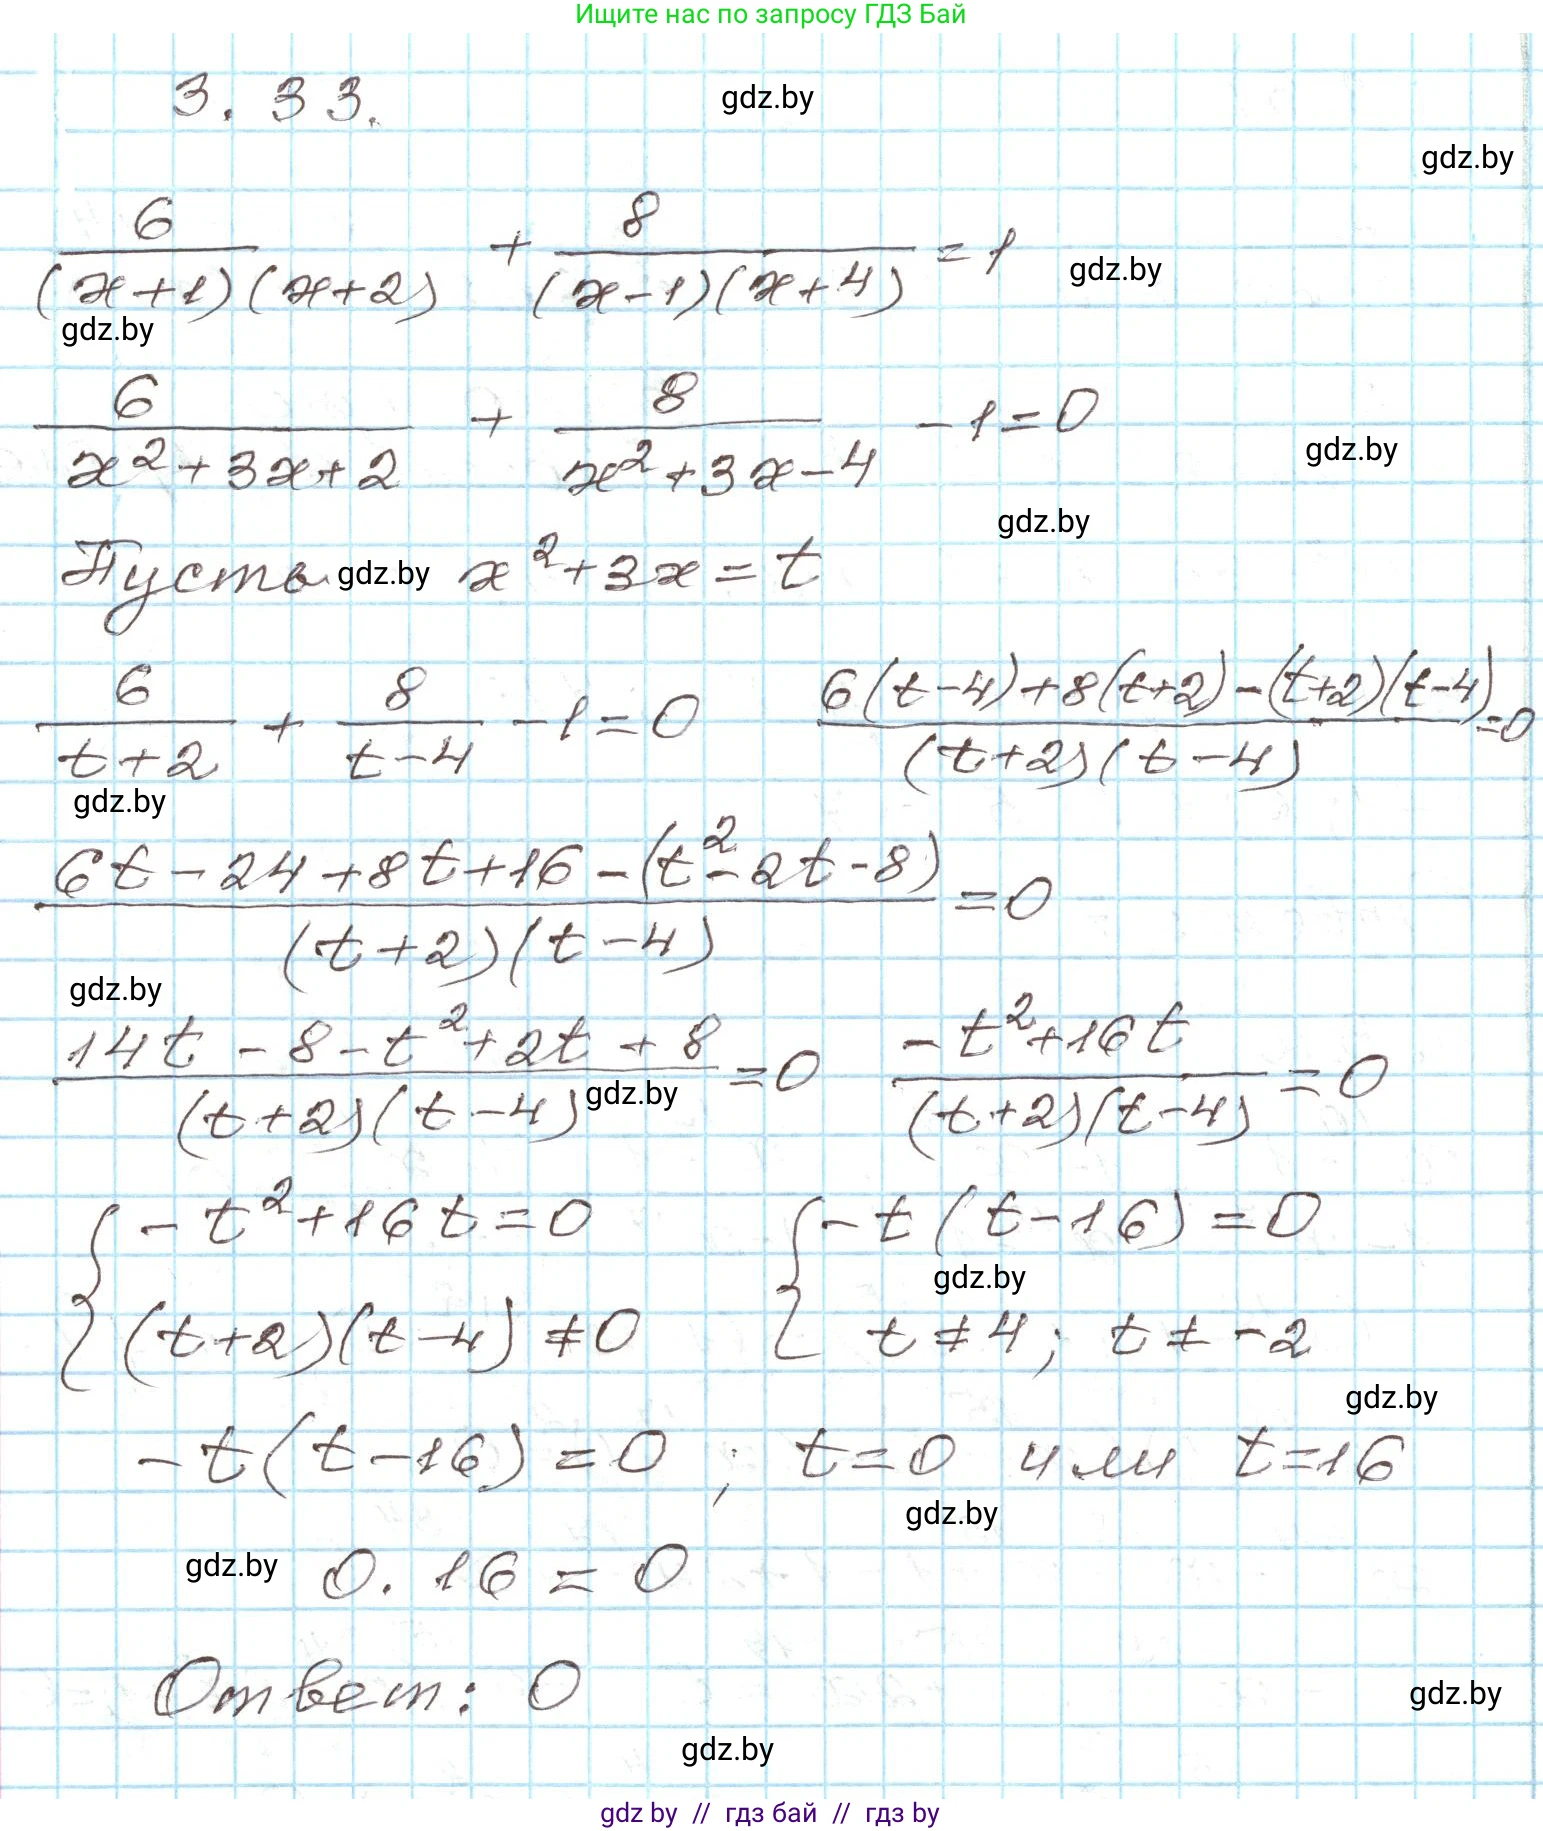 Ищите нас по запросу ГДЗ Бай
3.33.
gdz.by
gdz.by
6/((x+1)(x+2)) + 8/((x-1)(x+4)) = 1
gdz.by
gdz.by
6/(x²+3x+2) + 8/(x²+3x-4) - 1 = 0
gdz.by
gdz.by
Пусть gdz.by x²+3x=t
6/(t+2) + 8/(t-4) - 1 = 0 (6(t-4)+8(t+2)-(t+2)(t-4))/((t+2)(t-4)) = 0
gdz.by
(6t-24+8t+16-(t²-2t-8))/((t+2)(t-4)) = 0
gdz.by
(14t-8-t²+2t+8)/((t+2)(t-4)) = 0 (-t²+16t)/((t+2)(t-4)) = 0
gdz.by
{ -t²+16t=0 { -t(t-16)=0
gdz.by
(t+2)(t-4)≠0 t≠4; t≠-2
gdz.by
-t(t-16)=0; t=0 или t=16
gdz.by
gdz.by 0·16=0
Ответ: 0
gdz.by
gdz.by
gdz by // гдз бай // гдз by